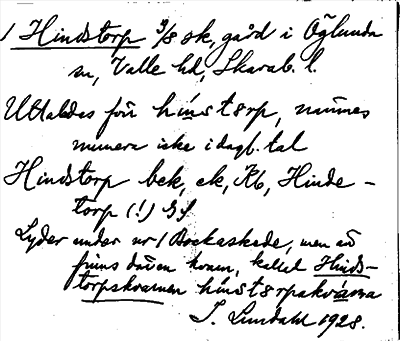 1 Hindstorp 3/8 sk, gård i Öglunda
sn, Valle hd, Skarab. l.
Uttalades förr hinstərp, nämnes
numera icke i dagl. tal
Hindstorp bek, ek, Kb, Hinde-
torp (!)
Lyder under nr 1 Bockaskede, men en
finns även kvarn, kallad Hinds-
torpskvarnen hinstərpakvarna
S. Lundahl 1928.